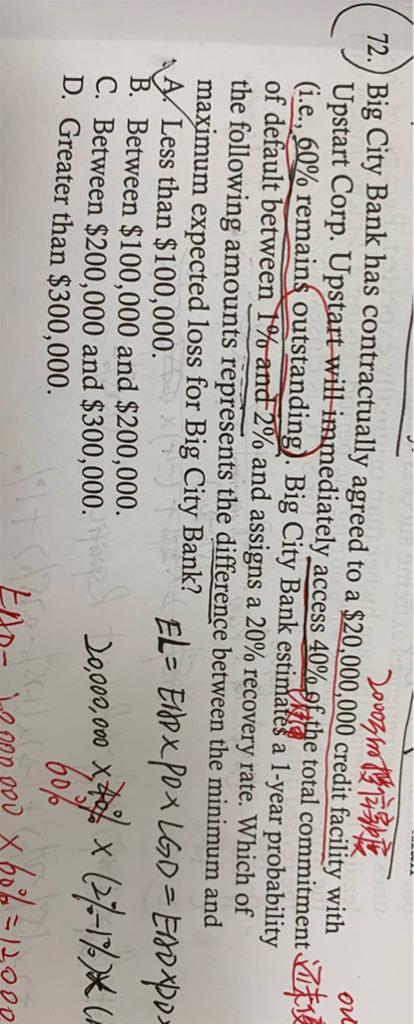 72. Big City Bank has contractually agreed to a $20,000,000 credit facility with
Upstart Corp. Upstart will immediately access 40% of the total commitment
(i.e., 60% remains outstanding). Big City Bank estimates a 1-year probability
of default between 1% and 2% and assigns a 20% recovery rate. Which of
the following amounts represents the difference between the minimum and
maximum expected loss for Big City Bank?
A. Less than $100,000.
B. Between $100,000 and $200,000.
C. Between $200,000 and $300,000.
D. Greater than $300,000.
EL = EAD × PD × LGD = EAD × PD ×
20,000,000 × 40% × (2%-1%) × (1
60%
EAD = 20,000,000 × 60% = 12,000